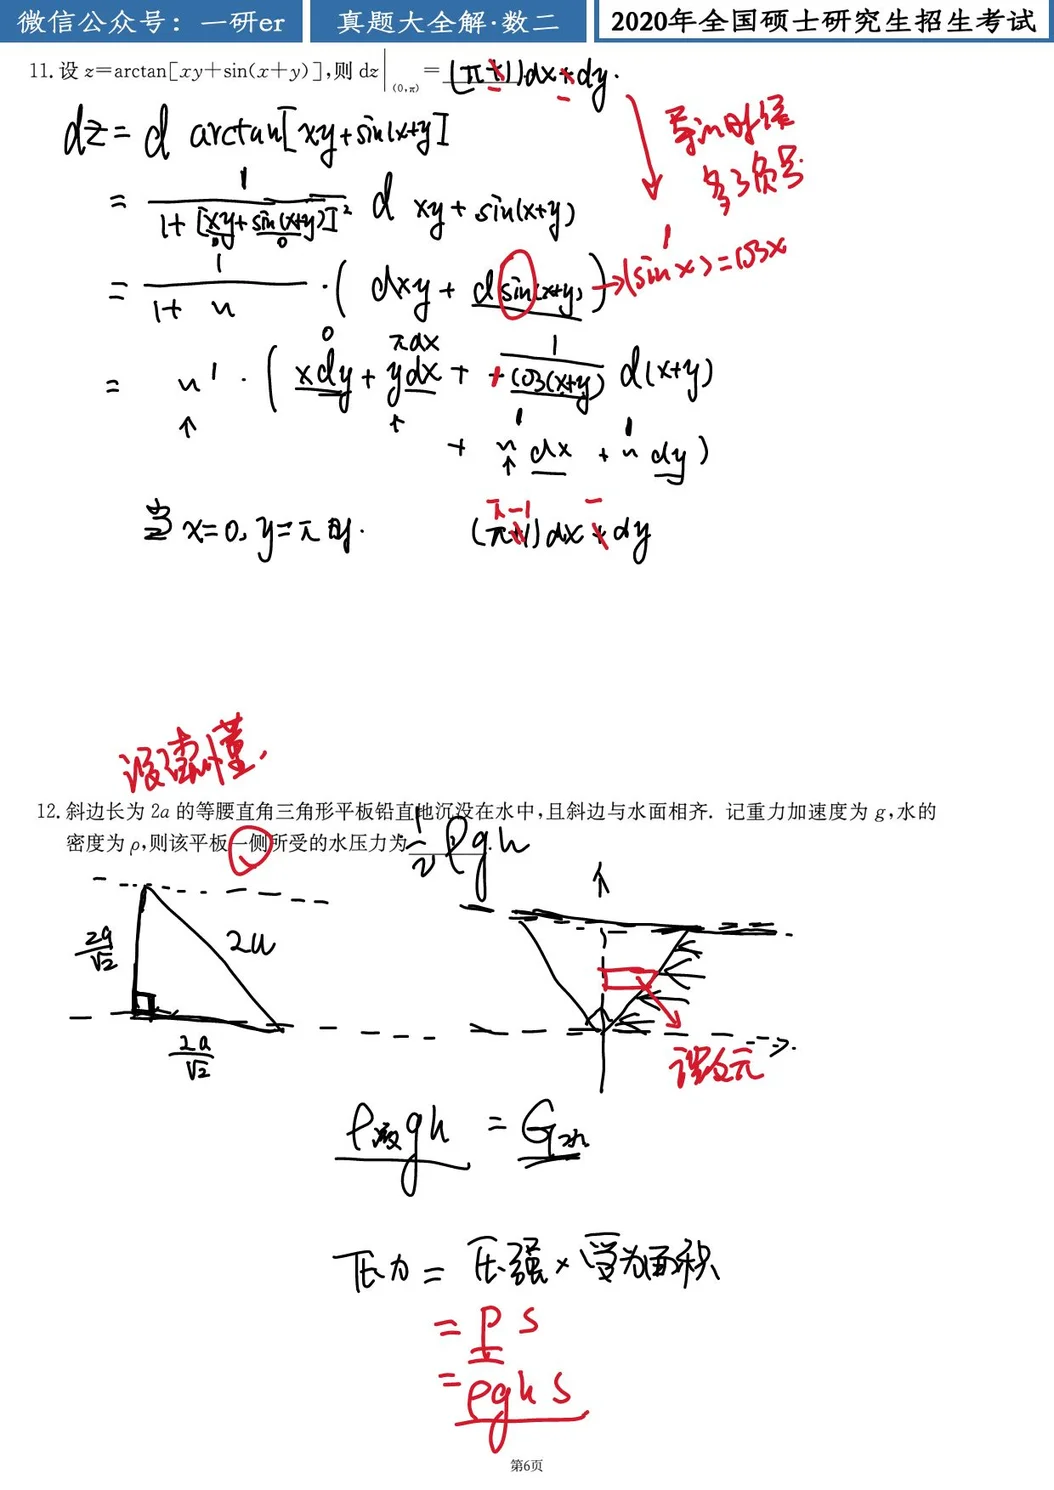 微信公众号：一研er
真题大全解·数二
2020年全国硕士研究生招生考试
11. 设 z=arctan[xy+sin(x+y)],则 dz|(0,π) = (π+1)dx+dy.
dz = d arctan[xy+sin(x+y)]
= 1/(1+[xy+sin(x+y)]²) d xy+sin(x+y)
0 0
= 1/(1+ ) · ( dxy + d sin(x+y) ) → (sin x)' = cosx
多了负号
0 πdx
= 1 · ( xdy + ydx + 1/cos(x+y) d(x+y)
+ dx + dy )
当 x=0, y=π 时. (π+1)dx+dy
π-1 -
没读懂.
12. 斜边长为 2a 的等腰直角三角形平板铅直地沉没在水中,且斜边与水面相齐. 记重力加速度为 g,水的
密度为 ρ,则该平板一侧所受的水压力为 1/2 ρgh .
2a/√2
2a
2a/√2
ρ液gh = G水
压力 = 压强 × 受力面积
= P S
= ρgh S
第6页